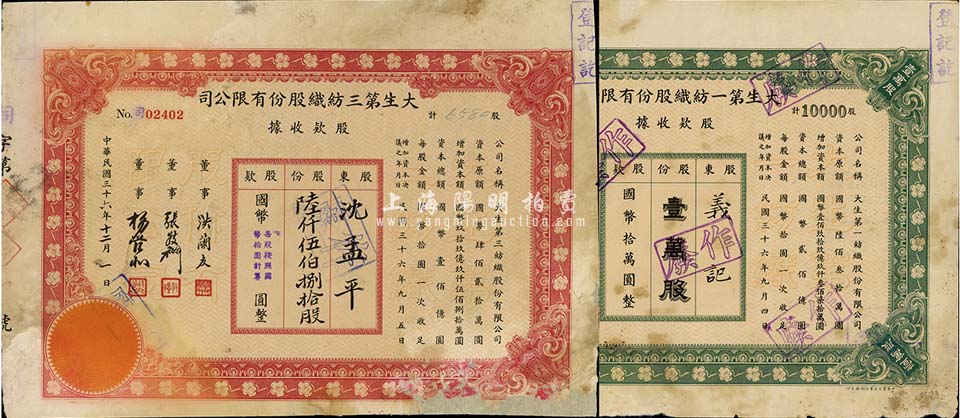 登記訖
大生第三紡織股份有限公司
股款收據
No. 司02402
計 6580 股
公司名稱 大生第三紡織股份有限公司
資本原額 國幣肆佰貳拾萬圓
增加資本額 國幣玖拾玖億玖仟伍佰捌拾萬圓
資本總額 國幣壹佰億圓
每股金額 國幣拾圓一次收足
增加資本決議之年月日 民國三十六年九月五日
股東 沈孟平
股份 陸仟伍伯捌拾股
股款 國幣 圓整
每股按照國幣拾圓計算
董事 洪蘭友
董事 張敬禮
董事 楊管北
中華民國三十六年十二月一日
字第
號
上海陽明拍賣
www.yangmingauction.com
登記訖
大生第一紡織股份有限
股款收據
計 10000 股
壹萬股
公司名稱 大生第一紡織股份有限公司
資本原額 國幣陸佰叁拾萬圓
增加資本額 國幣壹佰玖拾玖億玖仟叁佰柒拾萬圓
資本總額 國幣貳佰億圓
每股金額 國幣拾圓一次收足
增加資本決議之年月日 民國三十六年九月四日
股東 義記
股份 壹萬股
股款 國幣拾萬圓整
作廢
作廢
作廢
作廢